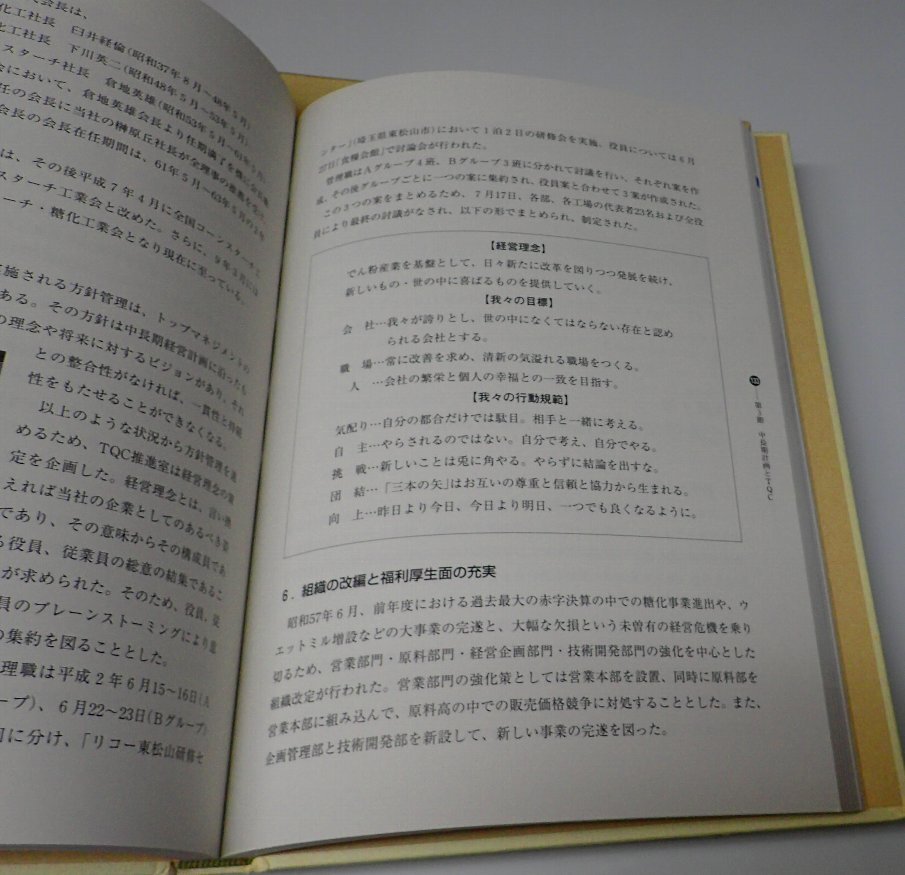 会長は、
化工社長　臼井経倫(昭和37年8月～48年5月)
化工社長　下川英二(昭和48年5月～53年5月)
スターチ社長　倉地英雄(昭和53年5月～61年5月)
会において、倉地英雄会長より任期満了を
任の会長に当社の榊原丘社長が全理事の推薦を受け
会長の会長在任期間は、61年5月～63年5月の2年
は、その後平成7年4月に全国コーンスターチ工
スターチ工業会と改めた。さらに、9年3月には
ーチ・糖化工業会となり現在に至っている。
実施される方針管理は、トップマネジメントの
ある。その方針は中長期経営計画に沿ったも
の理念や将来に対するビジョンがあり、それ
との整合性がなければ、一貫性と持続
性をもたせることができなくなる。
以上のような状況から方針管理を進
めるため、TQC推進室は経営理念の策
定を企画した。経営理念とは、言い換
えれば当社の企業としてのあるべき姿
であり、その意味からその構成員であ
る役員、従業員の総意の結集であるこ
が求められた。そのため、役員、従
員のブレーンストーミングにより意
の集約を図ることとした。
理職は平成2年6月15～16日(A
ープ)、6月22～23日(Bグループ)
回に分け、「リコー東松山研修セ
ンター」(埼玉県東松山市)において1泊2日の研修会を実施、役員については6月
27日「食糧会館」で討論会が行われた。
管理職はAグループ4班、Bグループ3班に分かれて討議を行い、それぞれ案を作
成、その後グループごとに一つの案に集約され、役員案と合わせて3案が作成された。
この3つの案をまとめるため、7月17日、各部、各工場の代表者23名および全役
員により最終の討議がなされ、以下の形でまとめられ、制定された。
【経営理念】
でん粉産業を基盤として、日々新たに改革を図りつつ発展を続け、
新しいもの・世の中に喜ばるものを提供していく。
【我々の目標】
会　社…我々が誇りとし、世の中になくてはならない存在と認め
られる会社とする。
職　場…常に改善を求め、清新の気溢れる職場をつくる。
人　…会社の繁栄と個人の幸福との一致を目指す。
【我々の行動規範】
気配り…自分の都合だけでは駄目。相手と一緒に考える。
自　主…やらされるのではない。自分で考え、自分でやる。
挑　戦…新しいことは兎に角やる。やらずに結論を出すな。
団　結…「三本の矢」はお互いの尊重と信頼と協力から生まれる。
向　上…昨日より今日、今日より明日、一つでも良くなるように。
6．組織の改編と福利厚生面の充実
昭和57年6月、前年度における過去最大の赤字決算の中での糖化事業進出や、ウ
エットミル増設などの大事業の完遂と、大幅な欠損という未曾有の経営危機を乗り
切るため、営業部門・原料部門・経営企画部門・技術開発部門の強化を中心とした
組織改定が行われた。営業部門の強化策としては営業本部を設置、同時に原料部を
営業本部に組み込んで、原料高の中での販売価格競争に対処することとした。また、
企画管理部と技術開発部を新設して、新しい事業の完遂を図った。
第3節　中長期計画とTQC